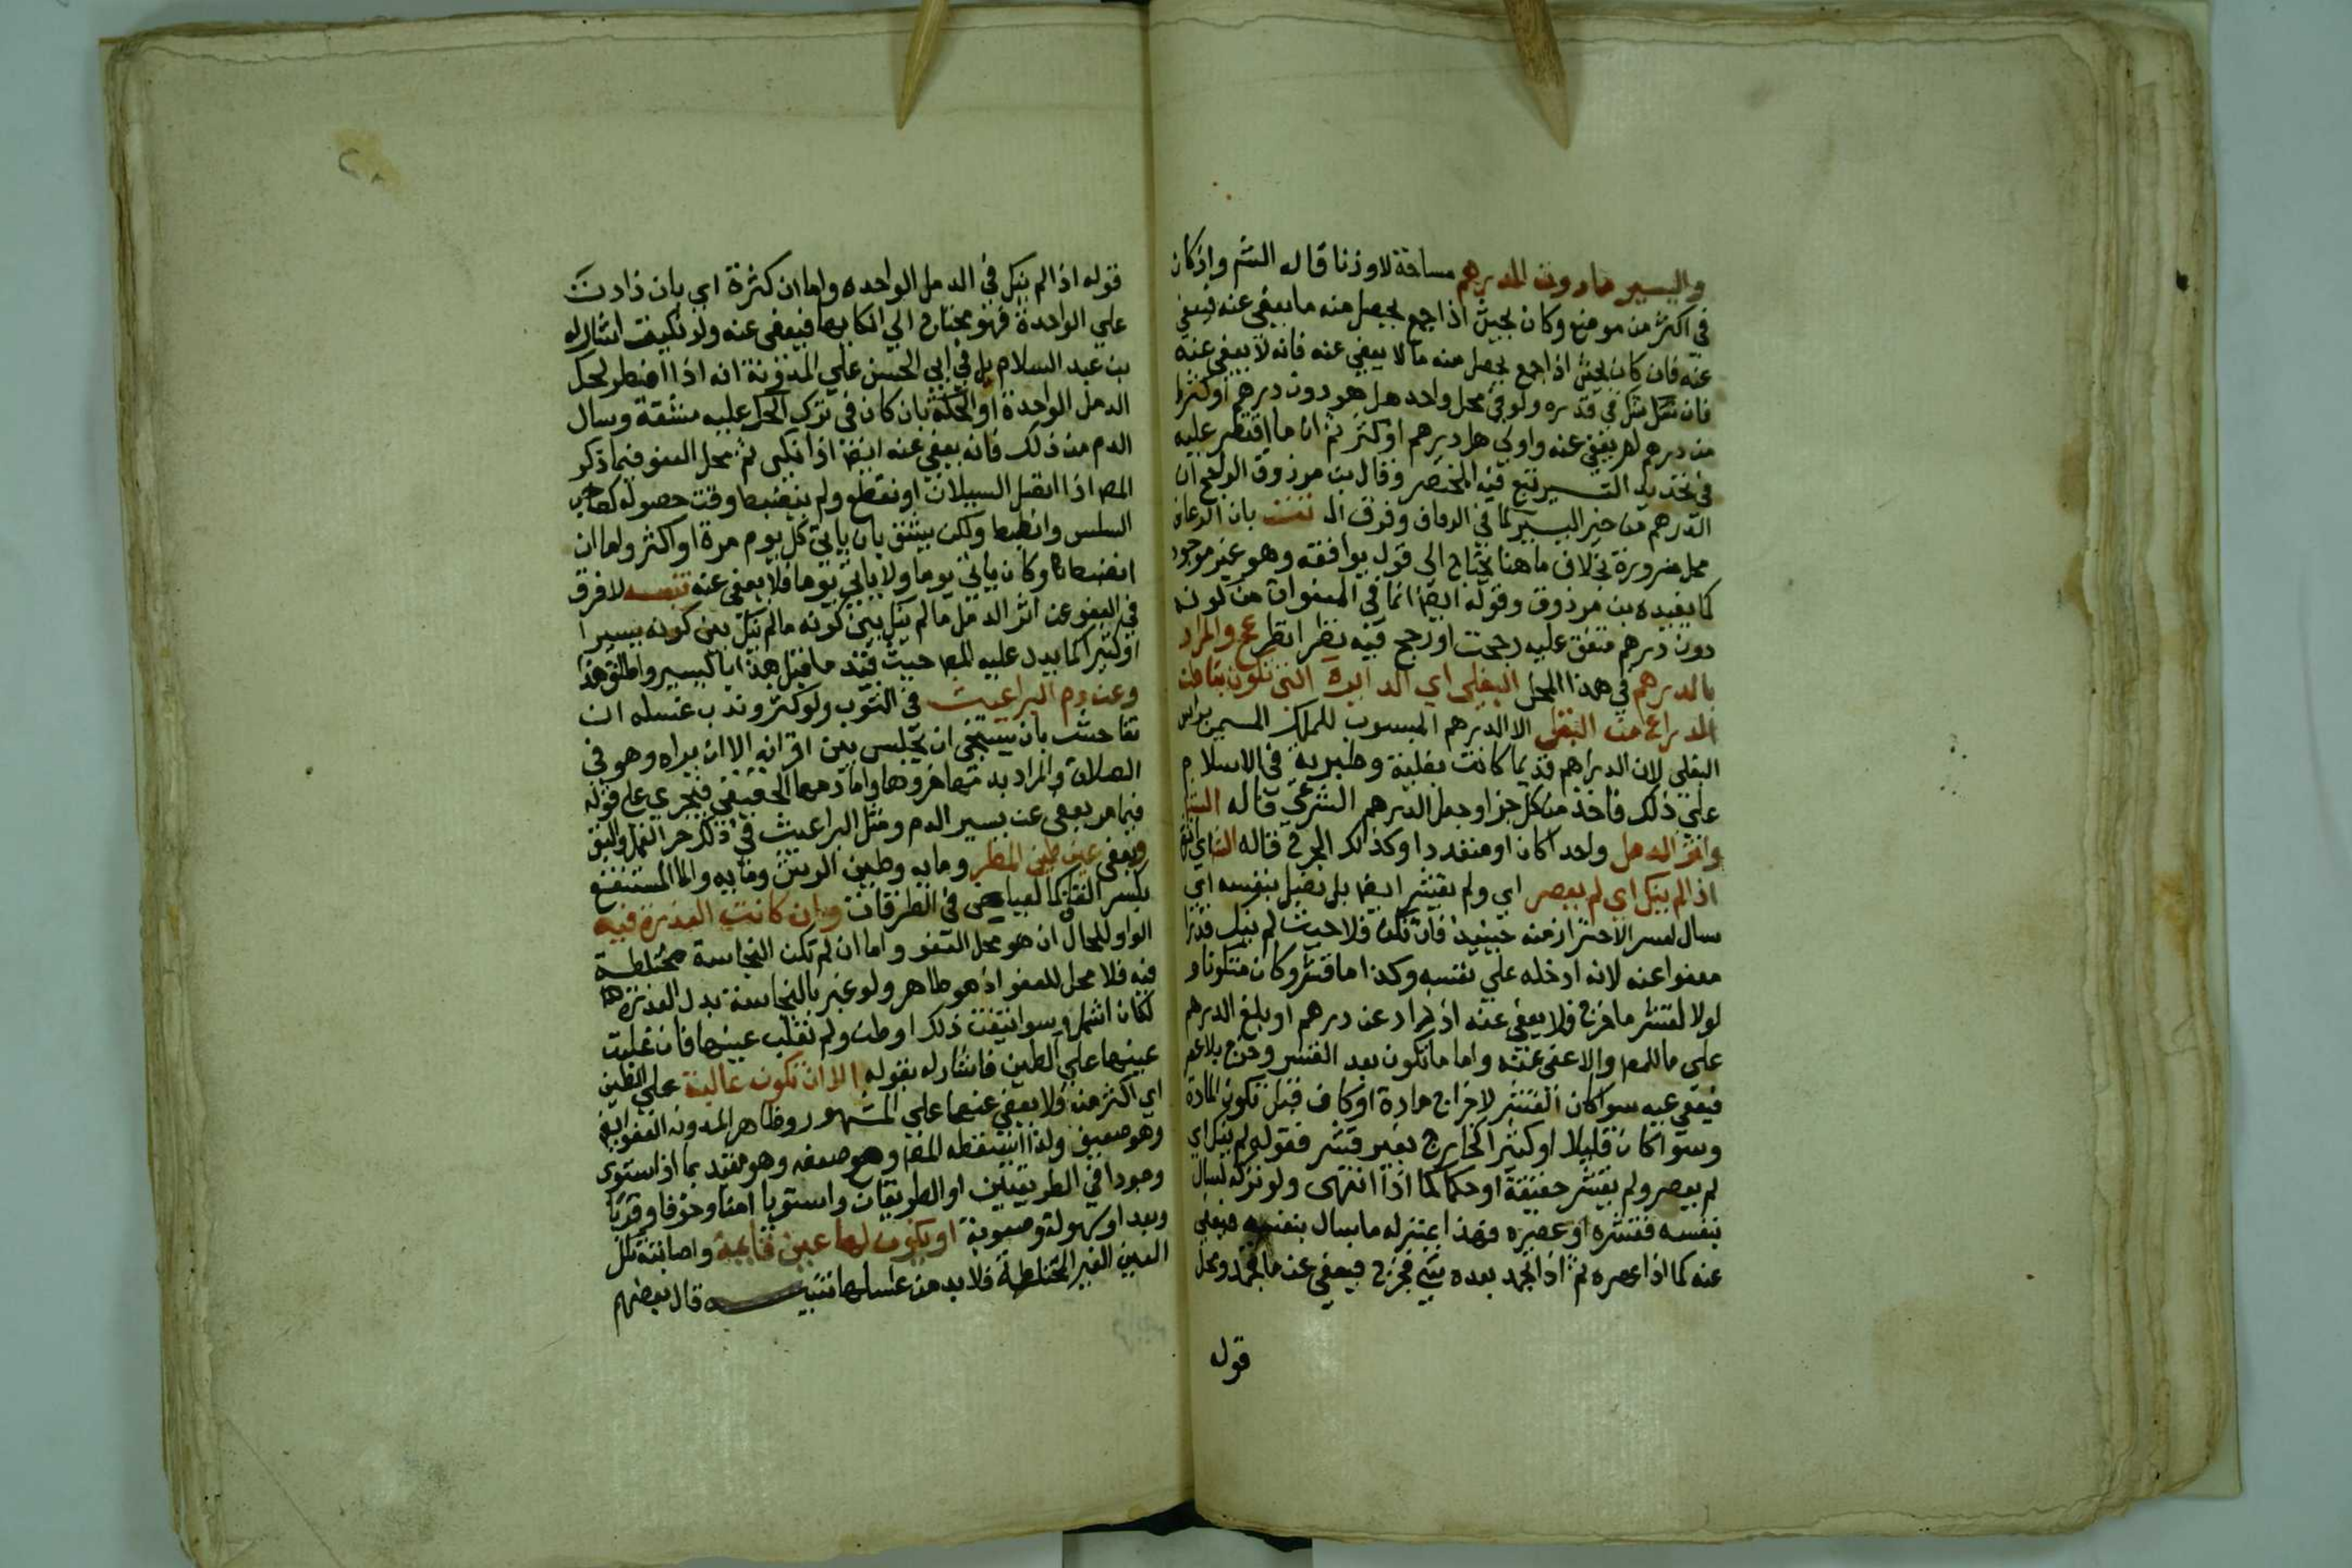 واليسير مادون الدرهم مساحة لاوزنا قاله الشم واذكان
في اكثر من موضع وكان بحيث اذا جمع يحصل منه ما يعفي عنه فيعفي
عنه فان كان بحيث اذا جمع يحصل منه ما لا يعفي عنه فانه لا يعفي عنه
فان شك في قدره ولو في محل واحد هل هو دون درهم او كثرا
من درهم لم يعفي عنه واولي هل درهم او كثر ثم ان ما اقتصر عليه
في تحديد اليسير تبع فيه المختصر وقال بن مرزوق الراجح ان
الدرهم من حيز اليسير كما في الرعاف وفرق بان الرعاف
محل ضرورة بخلاف ما هنا يحتاج الي قول يوافقه وهو غير موجود
كما يفيده بن مرزوق وقوله ايضا انما في المعفوات من كونه
دون درهم متفق عليه رجحت اورجح فيه نظر انظر عج والمراد
بالدرهم في هذا المحل البغلي اي الدايرة التي تكون بباطن
الذراع من البغل الا الدرهم المنسوب للملك المسمي براس
البغل لان الدراهم قديما كانت بغلية وطبرية في الاسلام
علي ذلك فاخذ من كل جزا وجعل الدرهم الشرعي قاله
واثر الدمل واحدا كان اومتعددا وكذلك الجرح قاله
اذا لم ينك اي لم يعصر اي ولم يقشر ايضا بل يصل بنفسه اي
سال لعسر الاحتراز منه حينيذ فان نكي فلا حيث لم ينك قدرا
معفوا عنه لانه ادخله علي نفسه وكذا ما قشر وكان متكونا و
لولا القشر ما خرج فلا يعفي عنه اذ زاد عن درهم او بلغ الدرهم
علي ما للمص والا عفي عنه واما ما تكون بعد القشر وخرج بلا عصر
فيعفي عنه سوا كان القشر لاخراج مادة اوكان قبل تكون المادة
وسوا كان قليلا او كثيرا الخارج بغير قشر فقوله لم ينك اي
لم يعصر ولم يقشر حقيقة او حكما كما اذا انتهي ولو تركه لسال
بنفسه فقشره او عصره فهذا بمنزله ما سال بنفسه فيعفي
عنه كما اذا عصره ثم اذا انجمد بعده شي فخرج فيعفي عن ما انجمد ومحل
قوله
قوله اذا لم ينك في الدمل الواحده واما ان كثرة اي بان زادت
علي الواحدة فهو محتاج الي انكايها فيعفي عنه ولو نكيت اشار له
بن عبد السلام بل في ابي الحسن علي المدونة انه اذا اضطر لحك
الدمل الواحدة او الحكة بان كان في ترك الحك عليه مشقة وسال
الدم من ذلك فانه يعفي عنه ايضا اذا نكي ثم محل العفو فيما ذكر
المص اذا اتصل السيلان او نقطع ولم ينضبط وقت حصوله كصاحب
السلس وانضبط ولكن يشق بان ياتي كل يوم مرة او اكثر واما ان
انضبط وكان ياتي يوما ولا ياتي يوما فلا يعفي عنه تنبيه لا فرق
في العفو عن اثر الدمل ما لم ينك بين كونه ما لم ينك بين كونه يسيرا
او كثيرا كما يدل عليه المص حيث قيد ما قبل هذا باليسير واطلق هذا
وعن دم البراغيث في الثوب ولو كثر وندب غسله ان
تفاحش بان يستحي ان يجلس بين اقرانه الا ان يراه وهو في
الصلاة والمراد بدمها خروها واما دمها الحقيقي فيجري علي قوله
فيما مر يعفي عن يسير الدم ومثل البراغيث في ذلك خر القمل والبق
ويعفي عن طين المطر ومايه وطين الرش ومايه والما المستنقع
بكسر القاف كما لعياض في الطرقات وان كانت العذرة فيه
الواو للحال ان هو محل العفو واما ان لم تكن النجاسة مختلطة
فيه فلا محل للعفو اذ هو طاهر ولو عبر بالنجاسة بدل العذرة
لكان اشمل وسوا تيقنت ذلك او ظن ولم تغلب عينها فان غلبت
عينها علي الطين فاشار له بقوله الا ان تكون غالبة علي الطين
اي اكثر منه فلا يعفي عنها علي المشهور وظاهر المدونه العفو ايضا
وهو ضعيف ولذا اسقطه المص وهو ضعفه وهو مقيد بما اذا ستوي
وجودا في الطريقين او الطريقان واستويا امنا وخوفا وقربا
وبعد اوسهولة وصعوبة او يكون لها عين قايمة واصابته تلك
العين الغير المختلطة فلا بد من غسلها تنبيه قال بعضهم